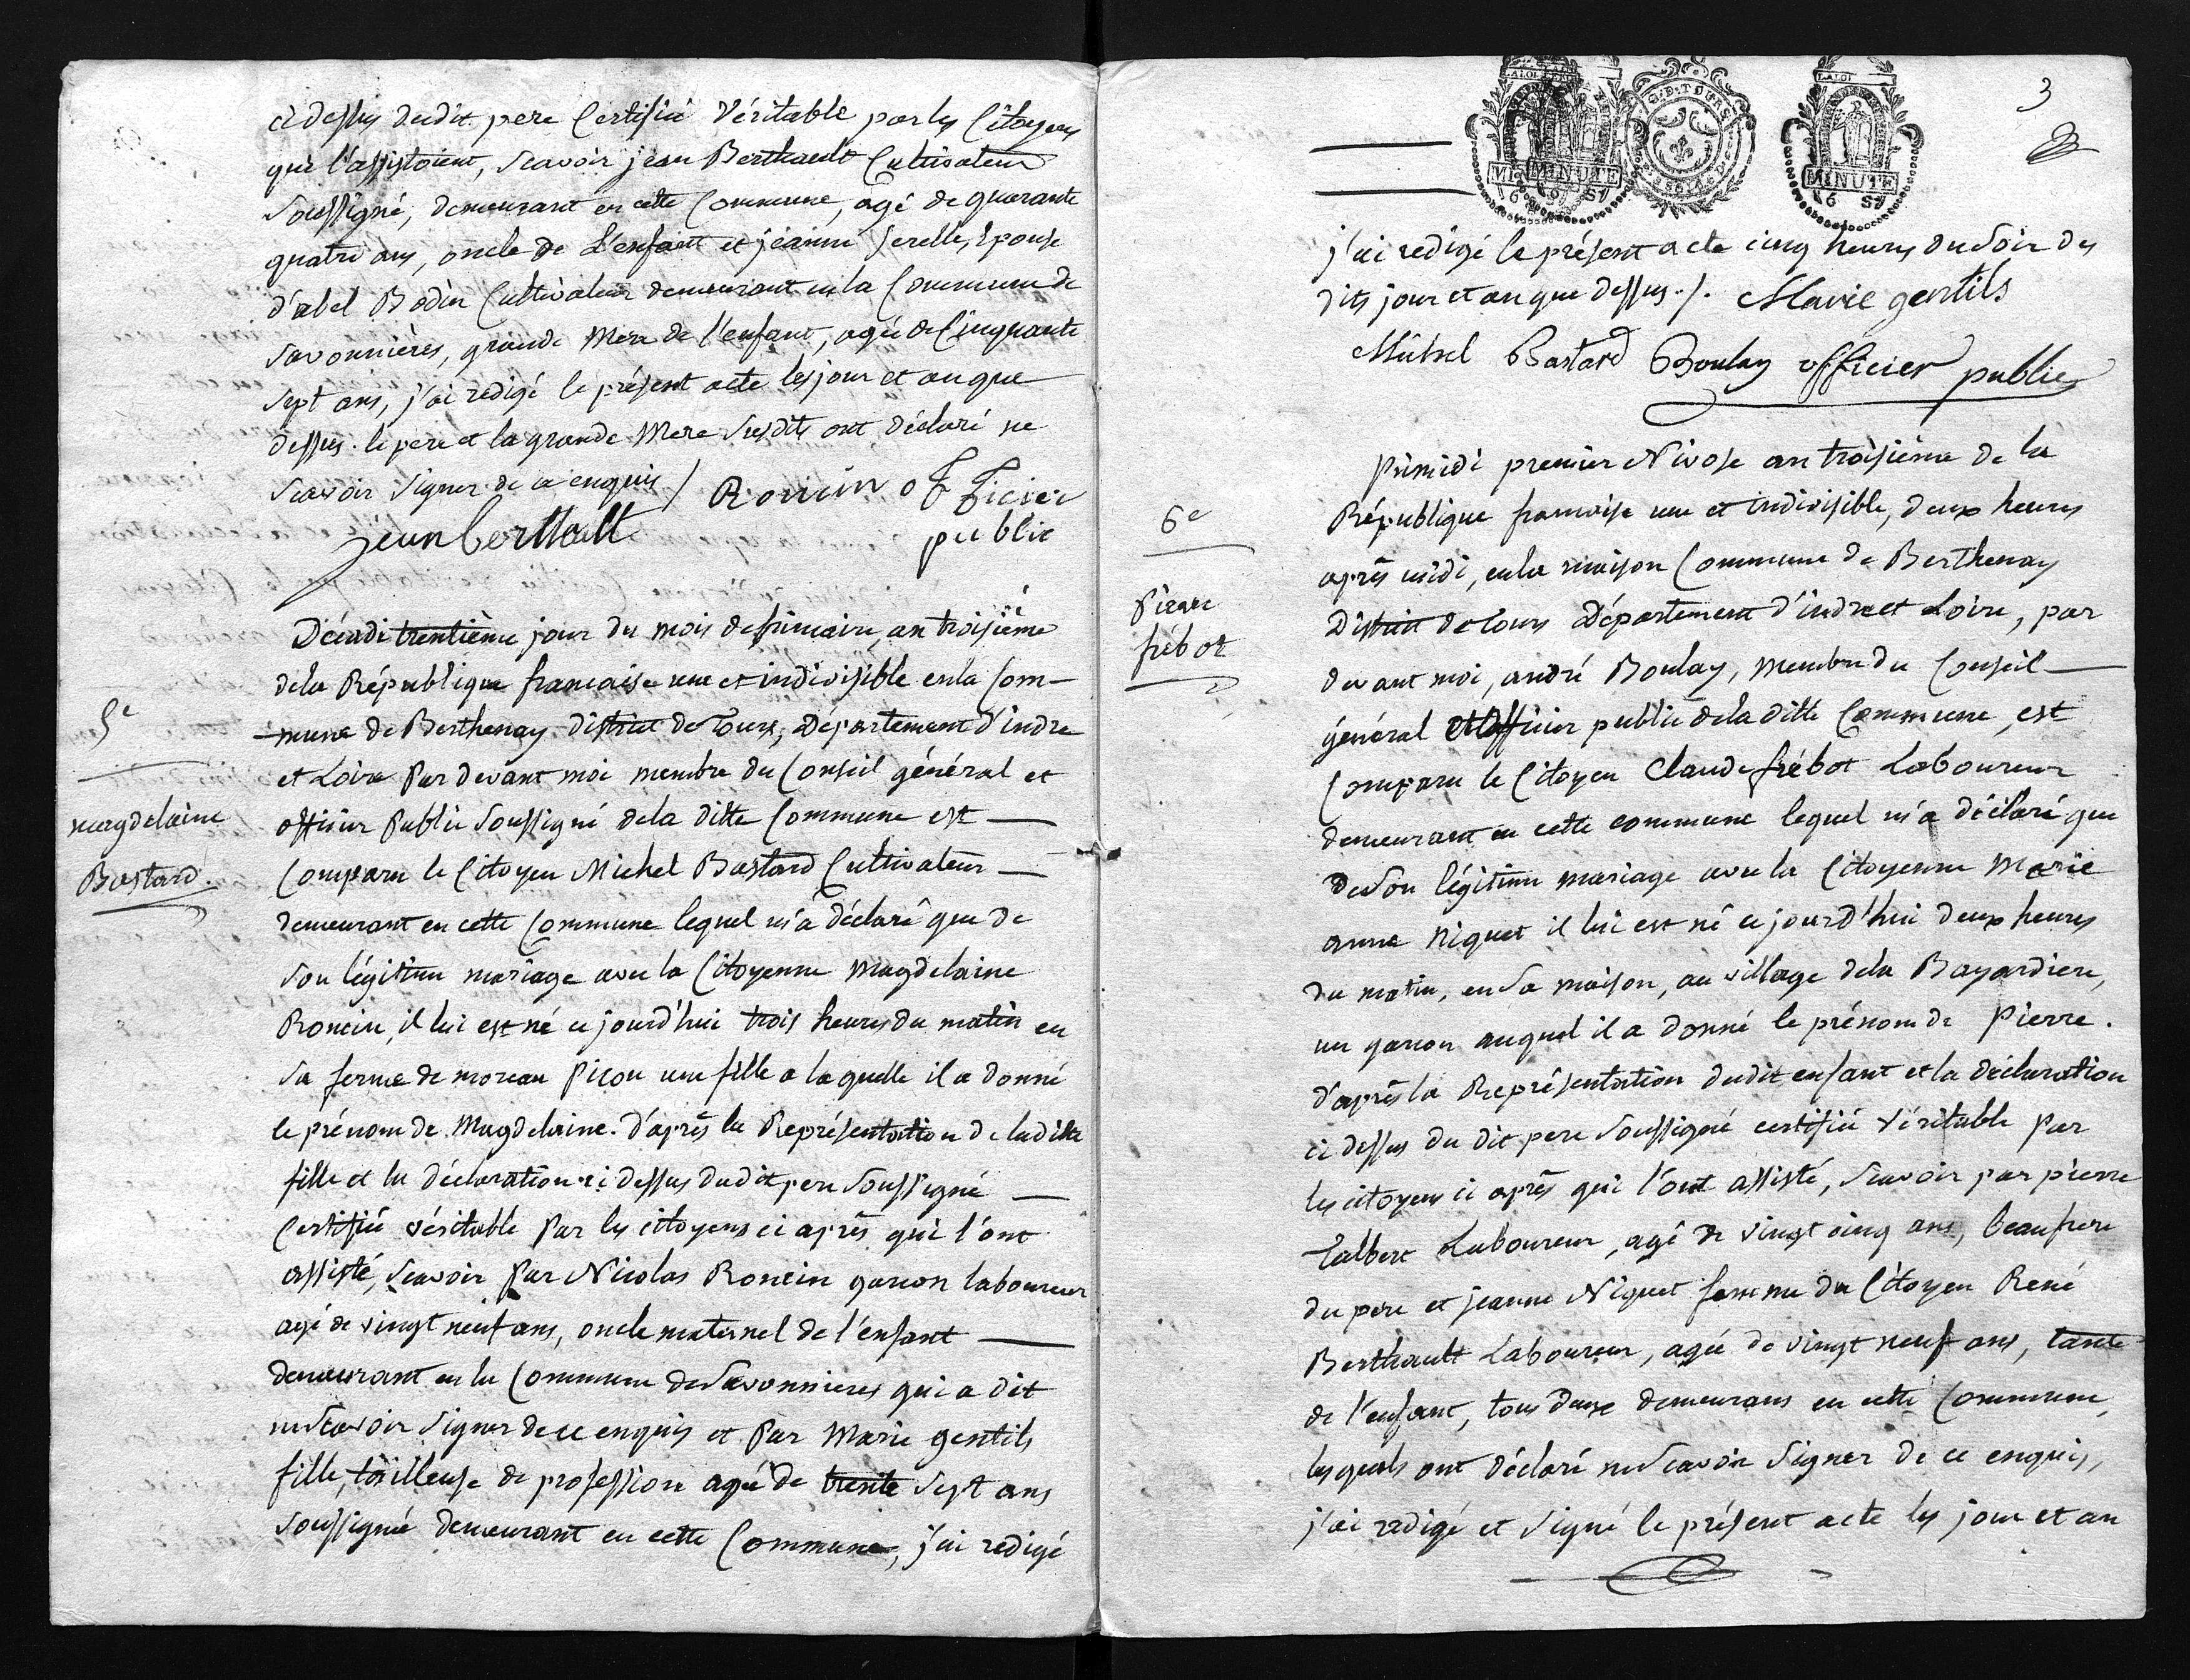 ci dessus dudit pere Certifiée Véritable par les Citoyens
qui l'assistoient, Scavoir jean Berthault Cultivateur
Soussigné, demeurant en cette Commune, agé de quarante
quatre ans, oncle de L'enfant et jeanne serelle, Epouse
d'abel Bodin Cultivateur demeurant en la Commune de
Savonnières, grande Mere de l'enfant, agée de Cinquante
Sept ans, j'ai redigé le présent acte les jour et an que
dessus. le pere et la grande Mere Susdits ont déclaré ne
Scavoir Signer de ce enquis / Roncin officier
jean berthault public
Décadi trentième jour du mois de frimaire, an troisième
de la République francaise une et indivisible en la Com-
5e
-mune de Berthenay district de Tours, Département d'indre
et Loire Par devant moi membre du Conseil général et
magdelaine
officier Public Soussigné de la ditte Commune est —
Bastard
Comparu le Citoyen Michel Bastard Cultivateur —
demeurant en cette Commune lequel m'a déclaré que de
Son légitime mariage avec la Citoyenne Magdelaine
Roncin, il lui est né ce jourd'hui trois heures du matin en
Sa ferme de moreau Picou une fille a laquelle il a donné
le prénom de Magdelaine. D'après la Représentation de laditte
fille et la déclaration ci dessus dudit pere Soussigné —
Certifiée véritable Par les citoyens ci après qui l'ont
assisté, Scavoir Par Nicolas Roncin garcon laboureur
agé de vingt neuf ans, oncle maternel de l'enfant —
demeurant en la Commune de Savonnieres qui a dit
ne Scavoir Signer de ce enquis et Par Marie gentils
fille, tailleuse de profession agée de trente Sept ans
Soussignée demeurant en cette Commune, j'ai redigé
3
LA LOI
G. D. TOURS
MINUTE
MINUTE
j'ai redigé le présent acte cinq heures du Soir des
dits jour et an que dessus ./. Marie gentils
Michel Bastard Boulay officier public
Primidi premier Nivose an troisième de la
6e
République francoise une et indivisible, deux heures
après midi, en la maison Commune de Berthenay
Pierre
District de Tours Département d'indre et Loire, par
frébot
devant moi, andré Boulay, Membre du Conseil —
général et Officier public de la ditte Commune, est
Comparu le Citoyen Claude frébot Laboureur
demeurant en cette commune lequel m'a déclaré que
de Son légitime mariage avec la Citoyenne Marie
anne Niquet il lui est né ce jourd'hui deux heures
du matin, en Sa maison, au village de la Bayardiere,
un garcon auquel il a donné le prénom de Pierre.
d'après la Représentation dudit enfant et la déclaration
ci dessus du dit pere Soussigné certifiée véritable Par
les citoyens ci après qui l'ont assisté, Scavoir par pierre
Talbert Laboureur, agé de vingt cinq ans, beaufrere
du pere et jeanne Niquet femme du Citoyen René
Berthault Laboureur, agée de vingt neuf ans, tante
de l'enfant, tous deux demeurans en cette Commune,
lesquels ont déclaré ne Scavoir Signer de ce enquis,
j'ai redigé et Signé le présent acte les jour et an